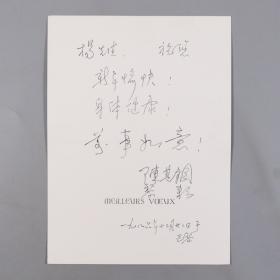 楊先生
新年愉快！
身体健康！
萬事如意！
陳其鋼
MEILLEURS VŒUX
一九八六年十二月廿二日于
巴黎